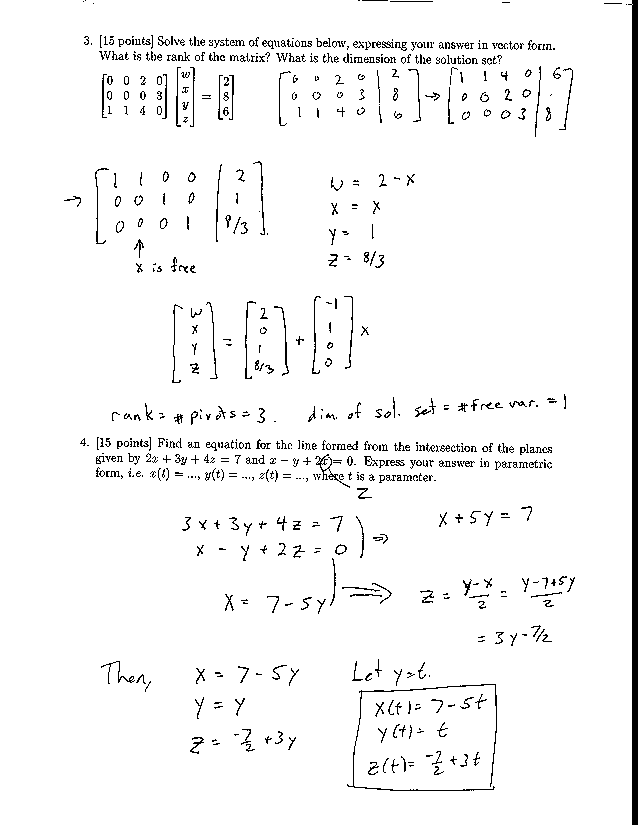 3. [15 points] Solve the system of equations below, expressing your answer in vector form.
What is the rank of the matrix? What is the dimension of the solution set?
[0 0 2 0; 0 0 0 3; 1 1 4 0] [w; x; y; z] = [2; 8; 6]
[0 0 2 0 | 2; 0 0 0 3 | 8; 1 1 4 0 | 6] → [1 1 4 0 | 6; 0 0 2 0 | .; 0 0 0 3 | 8]
→ [1 1 0 0 | 2; 0 0 1 0 | 1; 0 0 0 1 | 8/3]
↑
x is free
w = 2 - x
x = x
y = 1
z = 8/3
[w; x; y; z] = [2; 0; 1; 8/3] + [-1; 1; 0; 0] x
rank = # pivots = 3. dim. of sol. set = # free var. = 1
4. [15 points] Find an equation for the line formed from the intersection of the planes
given by 2x + 3y + 4z = 7 and x − y + 2t = 0. Express your answer in parametric
form, i.e. x(t) = ..., y(t) = ..., z(t) = ..., where t is a parameter.
z
3x + 3y + 4z = 7
x - y + 2z = 0
⇒ x + 5y = 7
x = 7 - 5y ⇒ z = y-x/2 = y-7+5y/2
= 3y - 7/2
Then, x = 7 - 5y
y = y
z = -7/2 + 3y
Let y=t.
x(t) = 7 - 5t
y(t) = t
z(t) = -7/2 + 3t